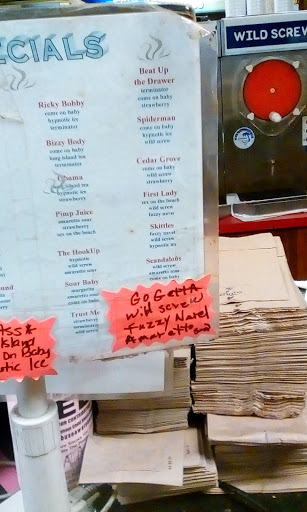 ECIALS
Ricky Bobby
come on baby
hypnotic ice
terminator
Bizzy Body
come on baby
long island tea
terminator
Obama
island tea
hypnotic ice
strawberry
Pimp Juice
amaretto sour
strawberry
sex on the beach
The HookUp
hypnotic
wild screw
amaretto sour
Sour Baby
margarita
amaretto sour
come on baby
Trust Me
strawberry
terminator
Beat Up
the Drawer
terminator
come on baby
strawberry
Spiderman
come on baby
hypnotic ice
wild screw
Cedar Grove
come on baby
wild screw
strawberry
First Lady
sex on the beach
wild screw
fuzzy navel
Skittles
fuzzy navel
wild screw
hypnotic ice
Scandalous
wild screw
come on baby
amaretto sour
Go Getta
Wild Screw
Fuzzy Navel
Amaretto
island
On Baby
tic Ice
WILD SCREW